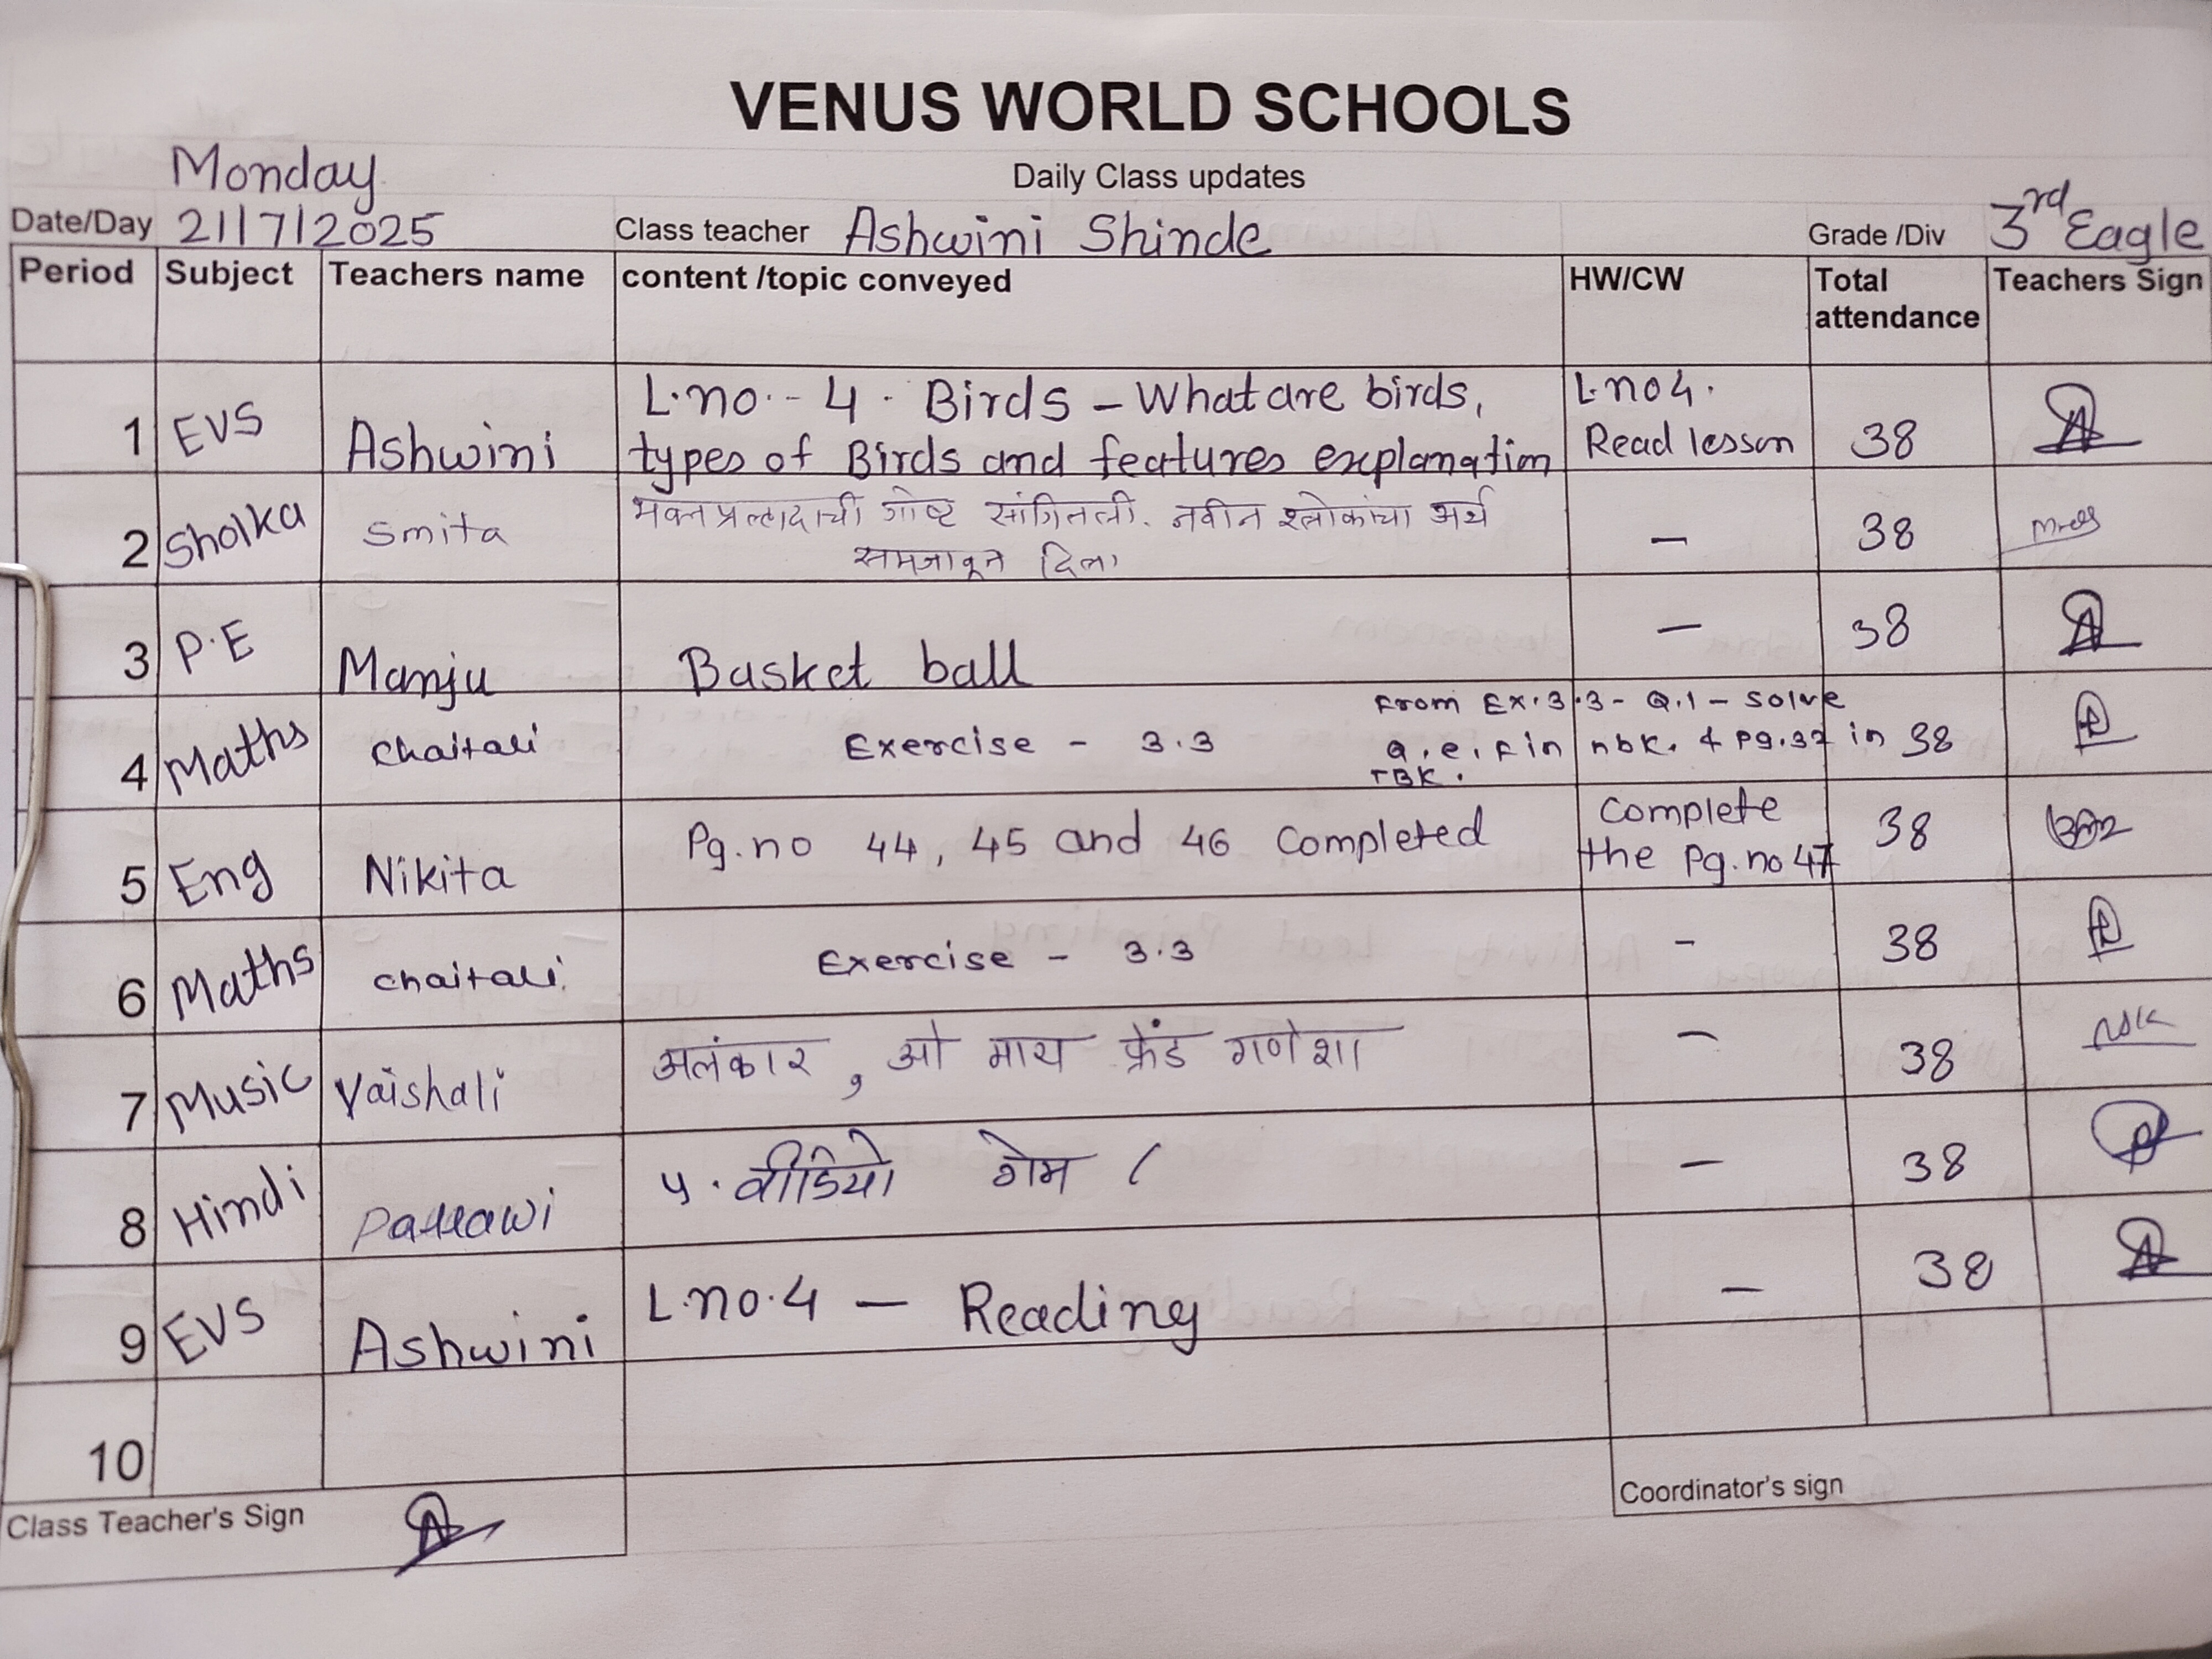 VENUS WORLD SCHOOLS
Daily Class updates
Monday
Date/Day 21/7/2025 Class teacher Ashwini Shinde Grade /Div 3rd Eagle
Period Subject Teachers name content /topic conveyed HW/CW Total attendance Teachers Sign
1 EVS Ashwini L.no.- 4. Birds - What are birds, types of Birds and features explanation L.no 4. Read lesson 38
2 Sholka Smita भक्त प्रल्हादाची गोष्ट सांगितली. नवीन श्लोकांचा अर्थ समजावून दिला - 38
3 P.E Manju Basket ball - 38
4 Maths Chaitali Exercise - 3.3 From Ex.3.3- Q.1 - Solve a, e, f in nbk. & Pg.37 in TBK. 38
5 Eng Nikita Pg.no 44, 45 and 46 Completed Complete the Pg.no 47 38
6 Maths Chaitali. Exercise - 3.3 - 38
7 Music Vaishali अलंकार, ओ माय फ्रेंड गणेशा - 38
8 Hindi Pallawi ५. वीडियो गेम ( - 38
9 EVS Ashwini L.no.4 — Reading - 38
10
Class Teacher's Sign
Coordinator's sign